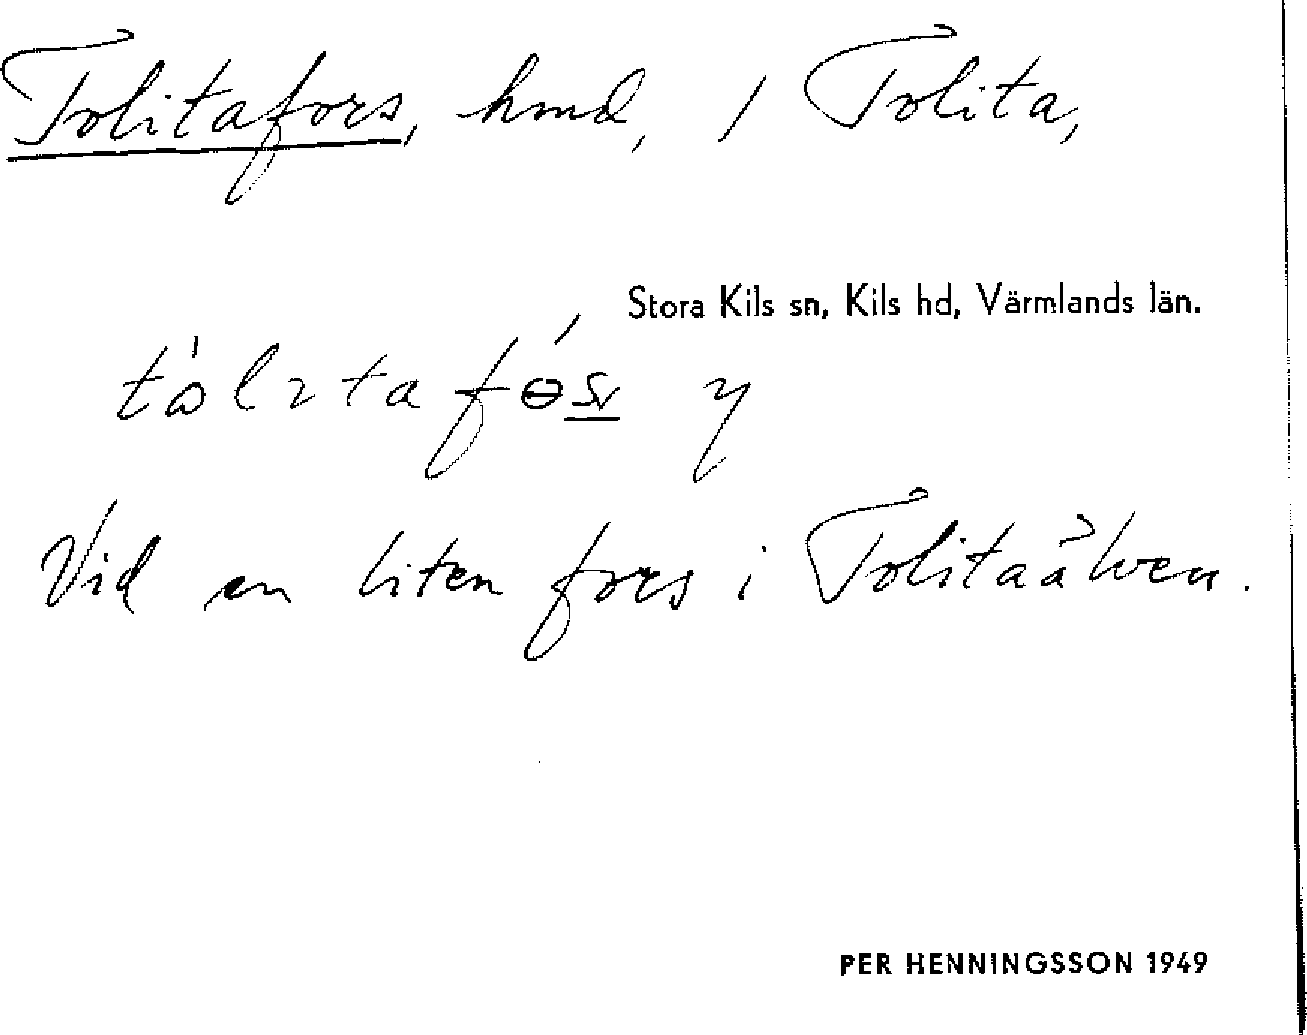 Tolitafors, hmd, / Tolita,
Stora Kils sn, Kils hd, Värmlands län.
Vid en liten fors i Tolitaälven.
PER HENNINGSSON 1949